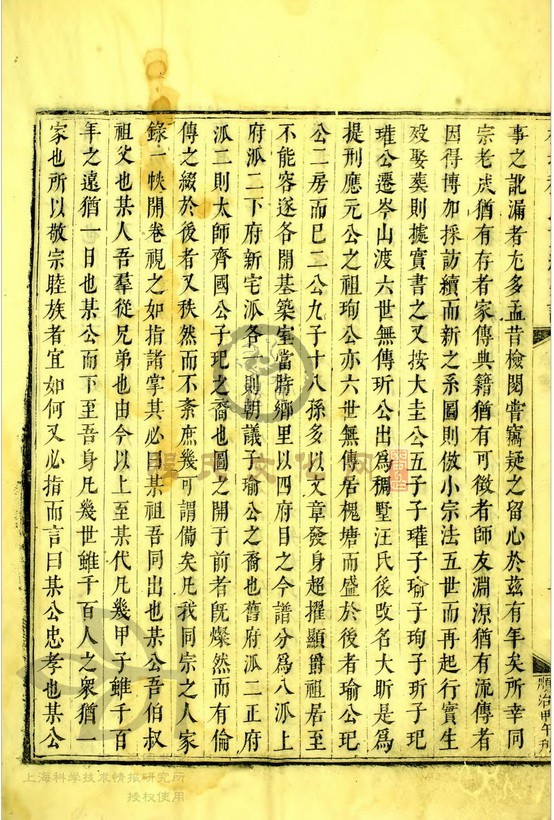 事之訛漏者尤多孟昔檢閱嘗竊疑之留心於茲有年矣所幸同
宗老成猶有存者家傳典籍猶有可徵者師友淵源猶有流傳者
因得博加採訪續而新之系圖則倣小宗法五世而再起行實生
歿娶葬則據實書之又按大圭公五子子瓘子瑜子珣子玠子玘
瓘公遷岑山渡六世無傳玠公出爲稠墅汪氏後改名大昕是爲
提刑應元公之祖珣公亦六世無傳居槐塘而盛於後者瑜公玘
公二房而巳二公九子十八孫多以文章發身超擢顯爵祖居至
不能容遂各開基築室當時鄉里以四府目之今譜分爲八派上
府派二下府新宅派各一則朝議子瑜公之裔也舊府派二正府
派二則太師齊國公子玘之裔也圖之開于前者旣燦然而有倫
傳之綴於後者又秩然而不紊庶幾可謂備矣凡我同宗之人家
錄一帙開卷視之如指諸掌其必曰某祖吾同出也某公吾伯叔
祖父也某人吾羣從兄弟也由今以上至某代凡幾甲子雖千百
年之遠猶一日也某公而下至吾身凡幾世雖千百人之衆猶一
家也所以敬宗睦族者宜如何又必指而言曰某公忠孝也某公
順治甲午刊
上海科学技术情报研究所
授权使用